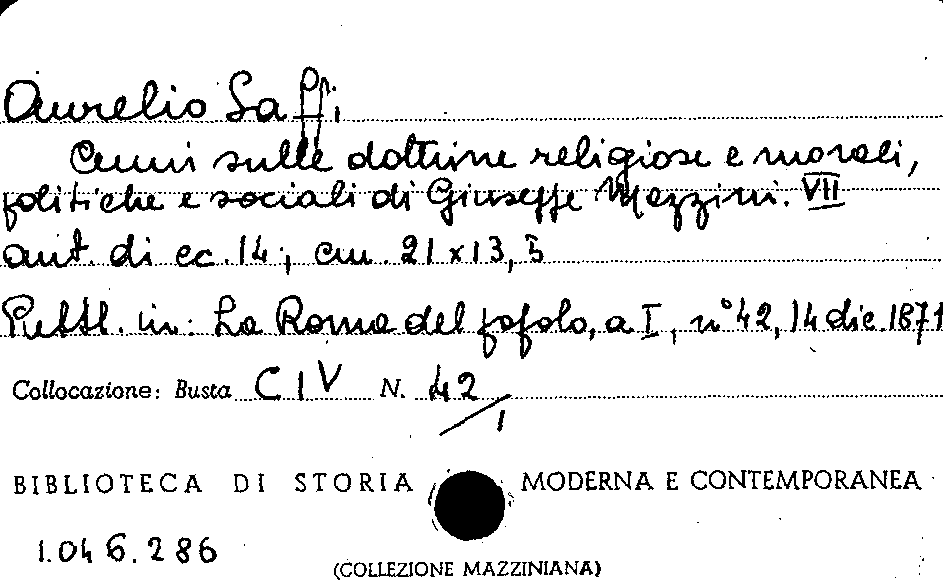 Aurelio Saffi
Cenni sulle dottrine religiose e morali,
politiche e sociali di Giuseppe Mazzini. VII
aut. di cc. 14; cm. 21 x 13,5
Pubbl. in: La Roma del popolo, a I, n° 42, 14 dic. 1871
Collocazione: Busta C I V N. 42/1
BIBLIOTECA DI STORIA MODERNA E CONTEMPORANEA
1.046.286
(COLLEZIONE MAZZINIANA)